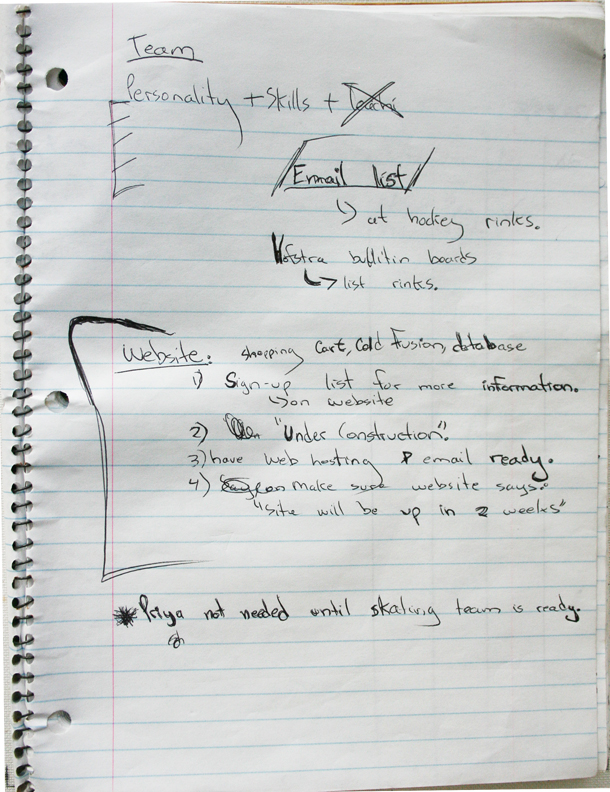 Team
Personality + Skills +
Email list
↳ at hockey rinks.
Hofstra bulletin boards
↳ list rinks.
Website: shopping Cart, Cold Fusion, database
1) Sign-up list for more information.
↳ on website
2) "Under Construction".
3) have web hosting & email ready.
4) make sure website says:
"site will be up in 2 weeks"
* Priya not needed until skating team is ready.